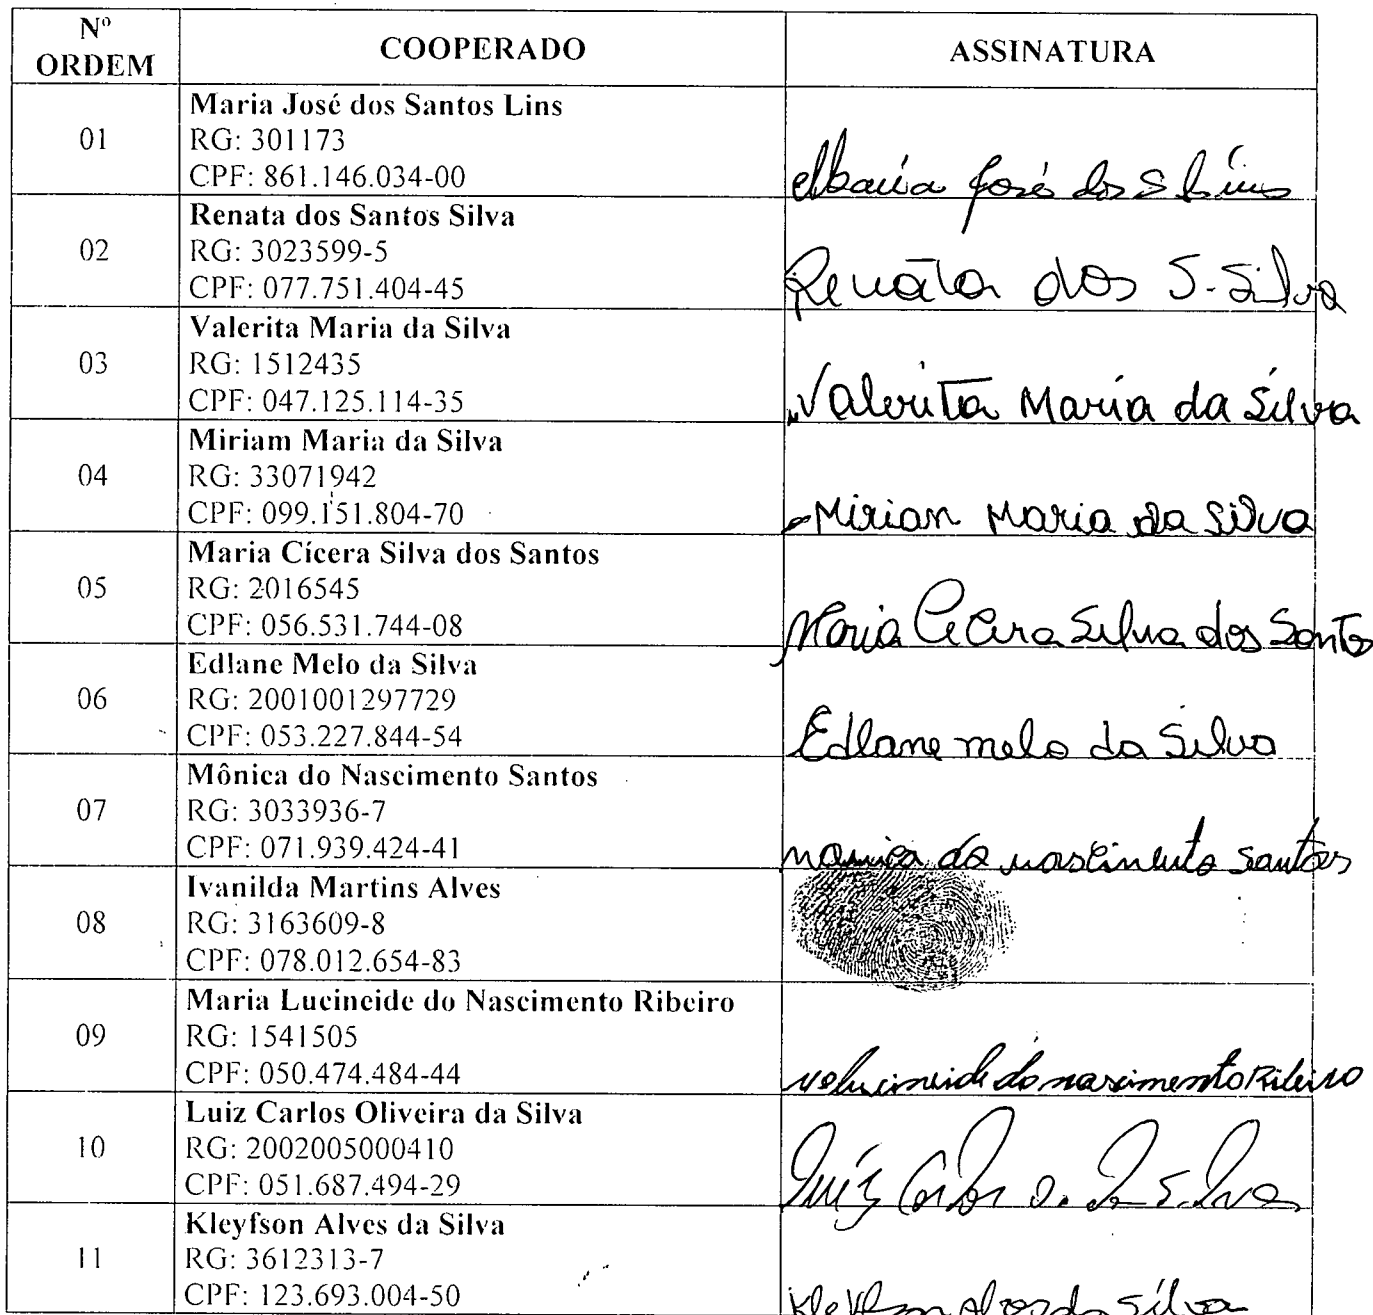 Nº ORDEM COOPERADO ASSINATURA
01
Maria José dos Santos Lins
RG: 301173
CPF: 861.146.034-00
Maria José dos S Lins
02
Renata dos Santos Silva
RG: 3023599-5
CPF: 077.751.404-45
Renata dos S. Silva
03
Valerita Maria da Silva
RG: 1512435
CPF: 047.125.114-35
Valerita Maria da Silva
04
Miriam Maria da Silva
RG: 33071942
CPF: 099.151.804-70
Miriam Maria da Silva
05
Maria Cícera Silva dos Santos
RG: 2016545
CPF: 056.531.744-08
Maria Cicera Silva dos Santos
06
Edlane Melo da Silva
RG: 2001001297729
CPF: 053.227.844-54
Edlane melo da Silva
07
Mônica do Nascimento Santos
RG: 3033936-7
CPF: 071.939.424-41
do santos
08
Ivanilda Martins Alves
RG: 3163609-8
CPF: 078.012.654-83
09
Maria Lucineide do Nascimento Ribeiro
RG: 1541505
CPF: 050.474.484-44
do
10
Luiz Carlos Oliveira da Silva
RG: 2002005000410
CPF: 051.687.494-29
Luiz Carlos O. da Silva
11
Kleyfson Alves da Silva
RG: 3612313-7
CPF: 123.693.004-50
da Silva